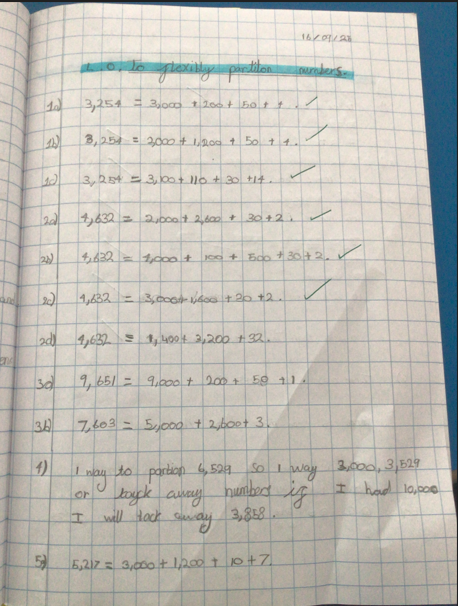 16/09/20
L.O. To flexibly partition numbers.
1a) 3,254 = 3,000 + 200 + 50 + 4.
1b) 3,254 = 2,000 + 1,200 + 50 + 4.
1c) 3,254 = 3,100 + 110 + 30 + 14.
2a) 4,632 = 2,000 + 2,600 + 30 + 2.
2b) 4,632 = 4,000 + 100 + 500 + 30 + 2.
2c) 4,632 = 3,000 + 1,600 + 30 + 2.
2d) 4,632 = 1,400 + 3,200 + 32.
3a) 9,651 = 9,000 + 200 + 50 + 1.
3b) 7,603 = 5,000 + 2,600 + 3.
4) 1 way to partion 6,529 so 1 way 3,000, 3,529
or away numbers if I had 10,000
I will tack away 3,858.
5) 5,217 = 3,000 + 1,200 + 10 + 7.